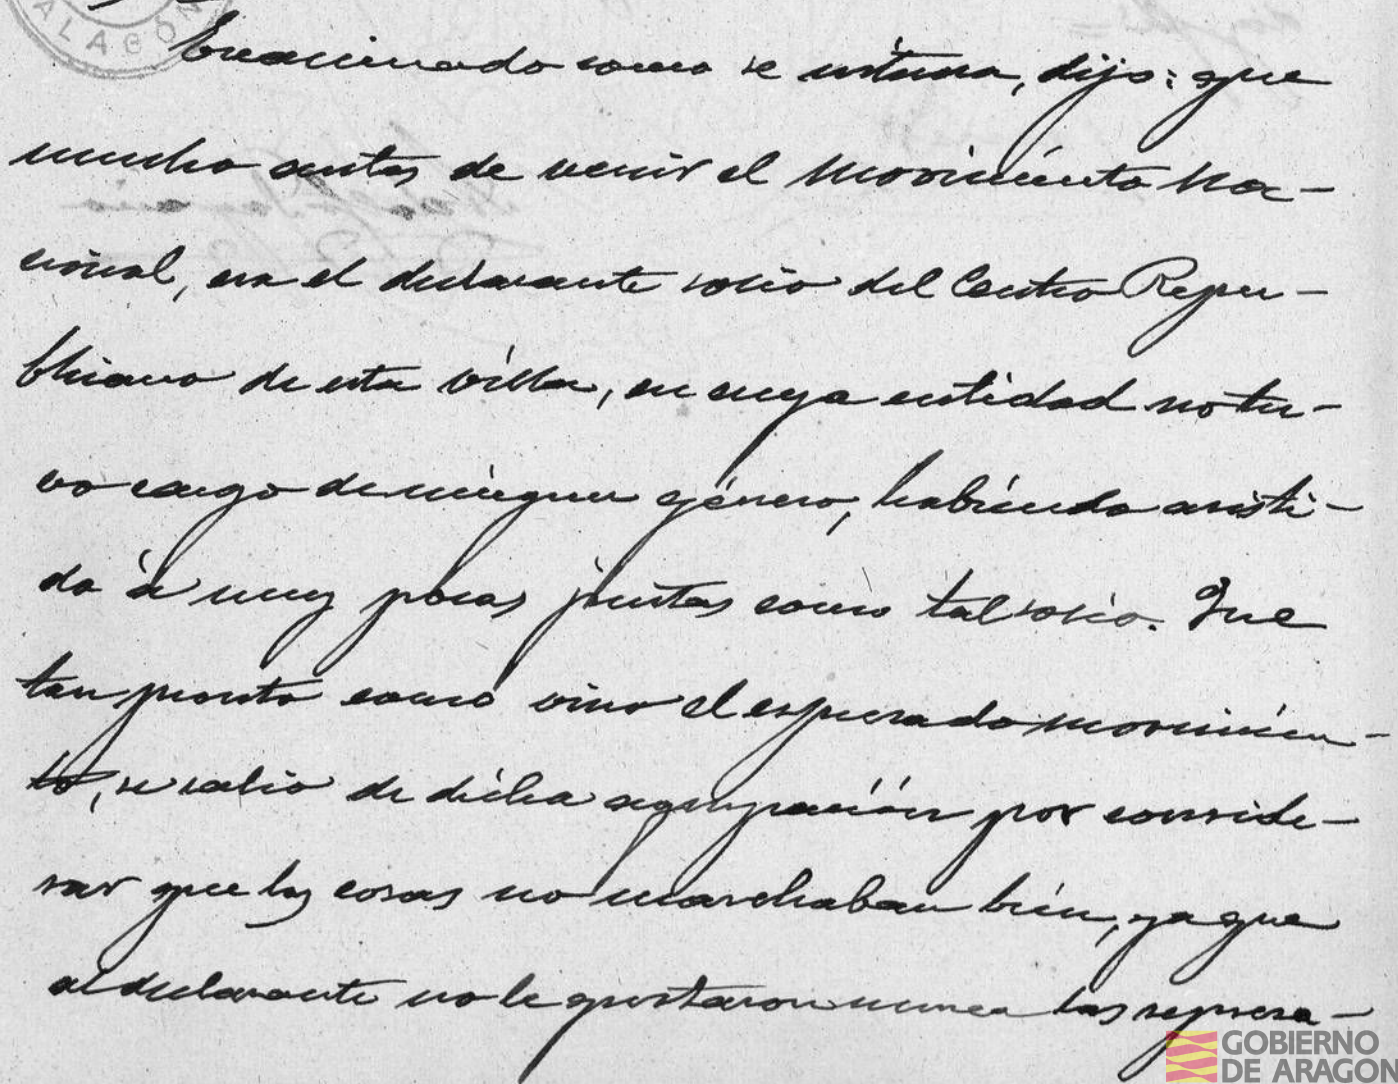 ALAGON
Examinado como se interesa, dijo: que
mucho antes de venir el Movimiento Na-
cional, era el declarante socio del Centro Repu-
blicano de esta Villa, en cuya entidad no tu-
vo cargo de ningun género, habiendo asisti-
do á muy pocas juntas como tal socio. Que
tan pronto como vino el esperado movimien-
to, se salio de dicha agrupación por conside-
rar que las cosas no marchaban bien, ya que
al declarante no le gustaron nunca las represa-
GOBIERNO
DE ARAGON